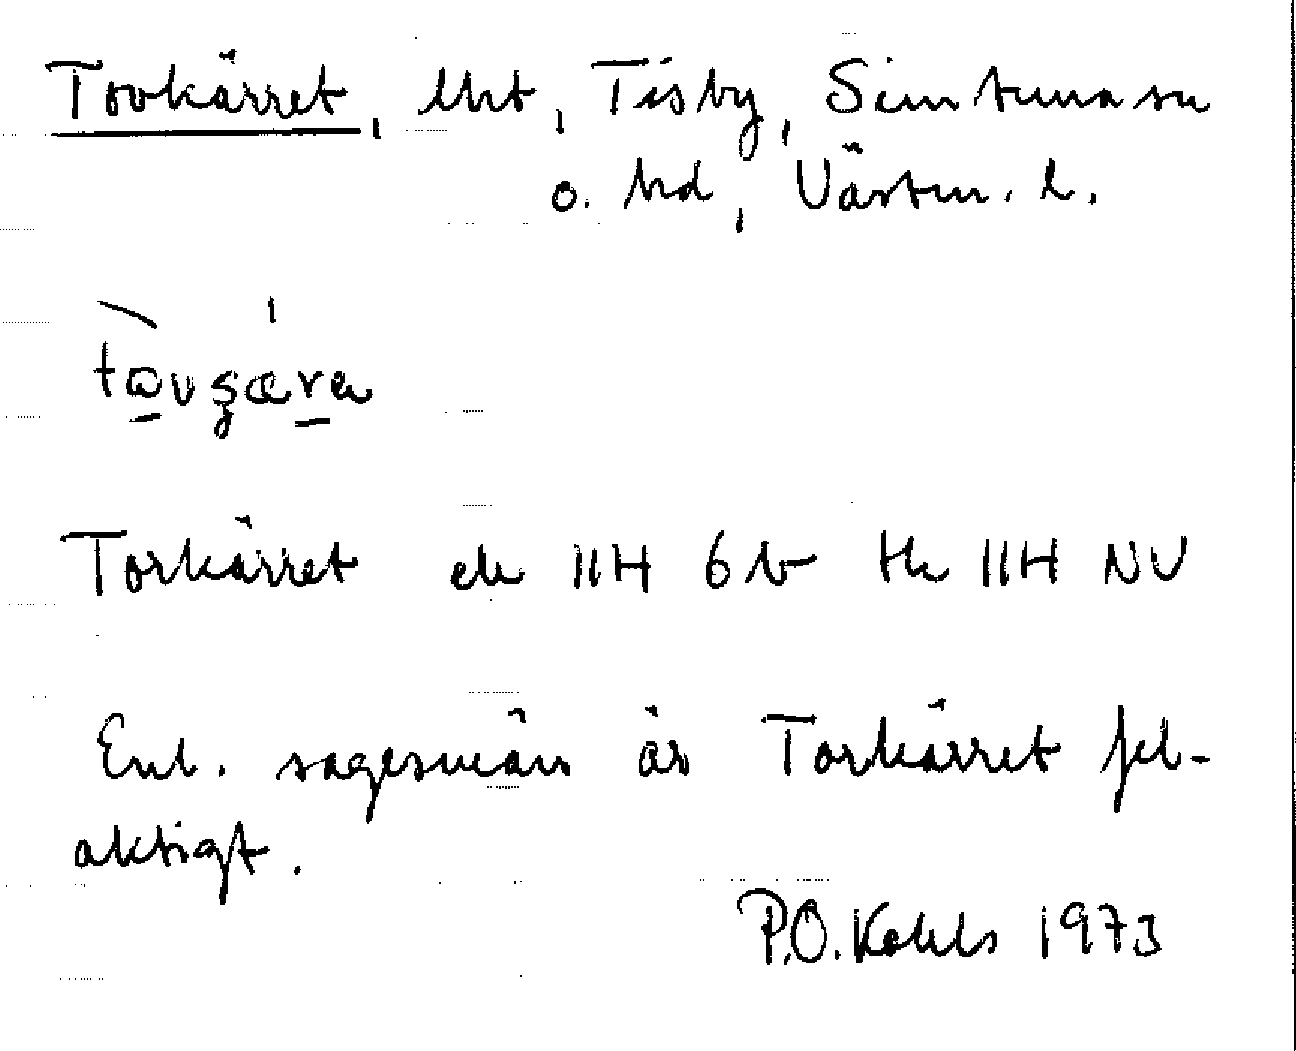 Tovkärret, lht, Tisby, Simtuna sn
o. hd, Västm. l.
Torkärret ek 11H 6b tk 11H NV
Enl. sagesmän är Torkärret fel-
aktigt.
P.O. Kohls 1973